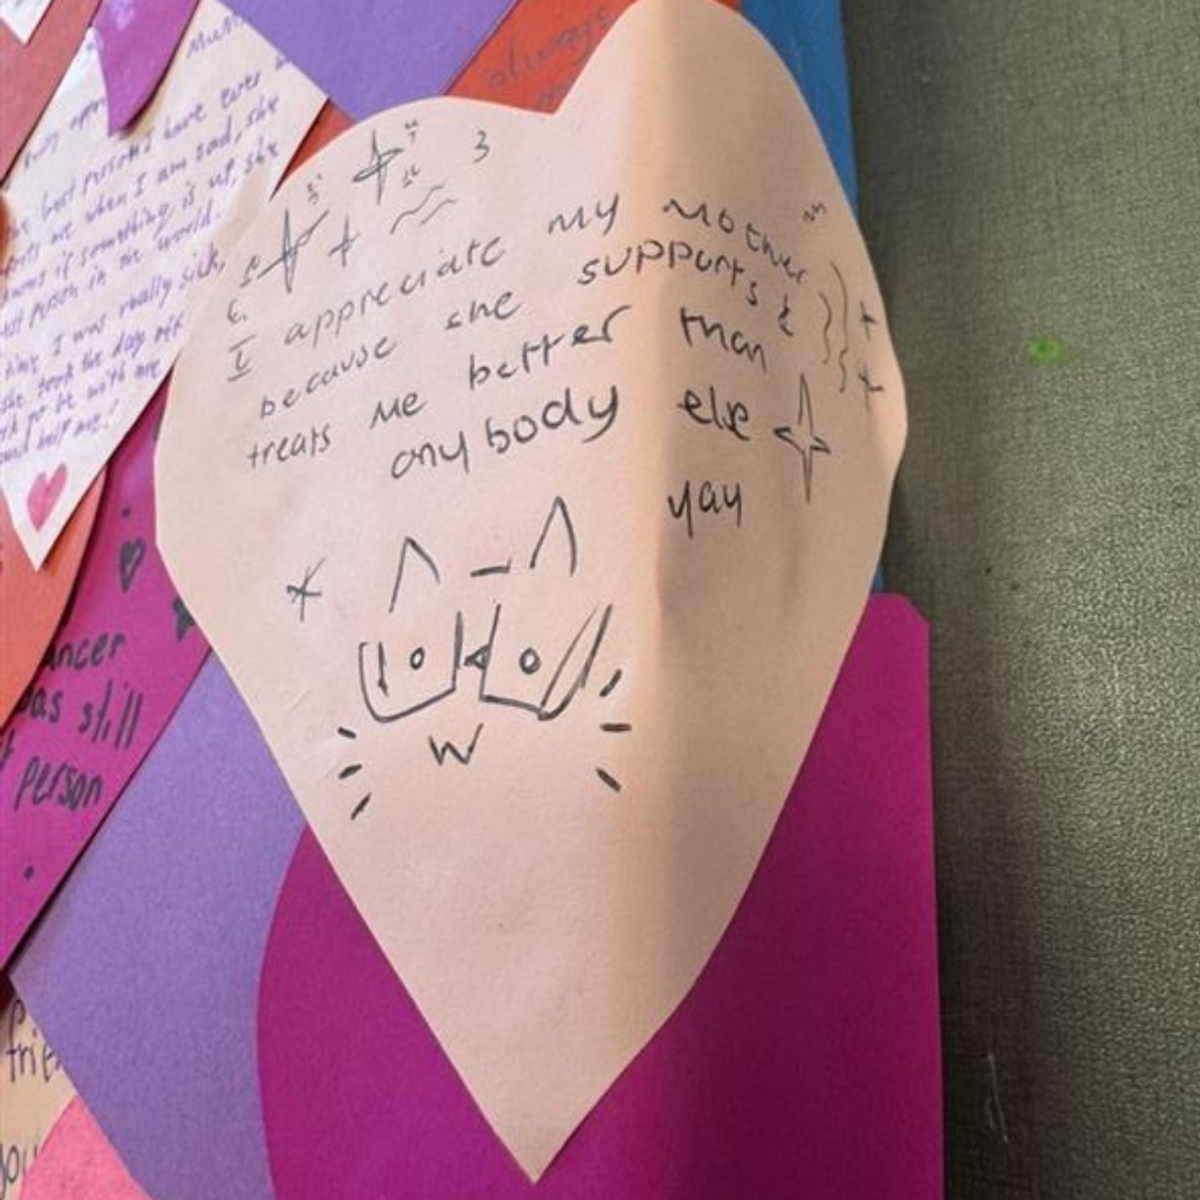 I appreciate my mother
because she supports &
treats me better than
anybody else
yay
always
best person I have ever
me when I am sad, she
if something is up, she
person in the world.
time I was really sick,
she took the day off
to be with me
me!
was still
person